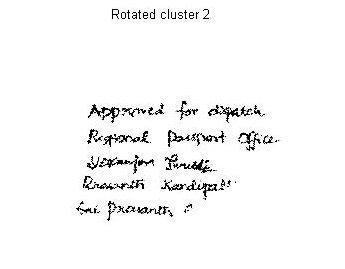 Rotated cluster 2
Approved for dispatch
Regional Passport Office
Prasanth Kandipalli
Sai Prasanth